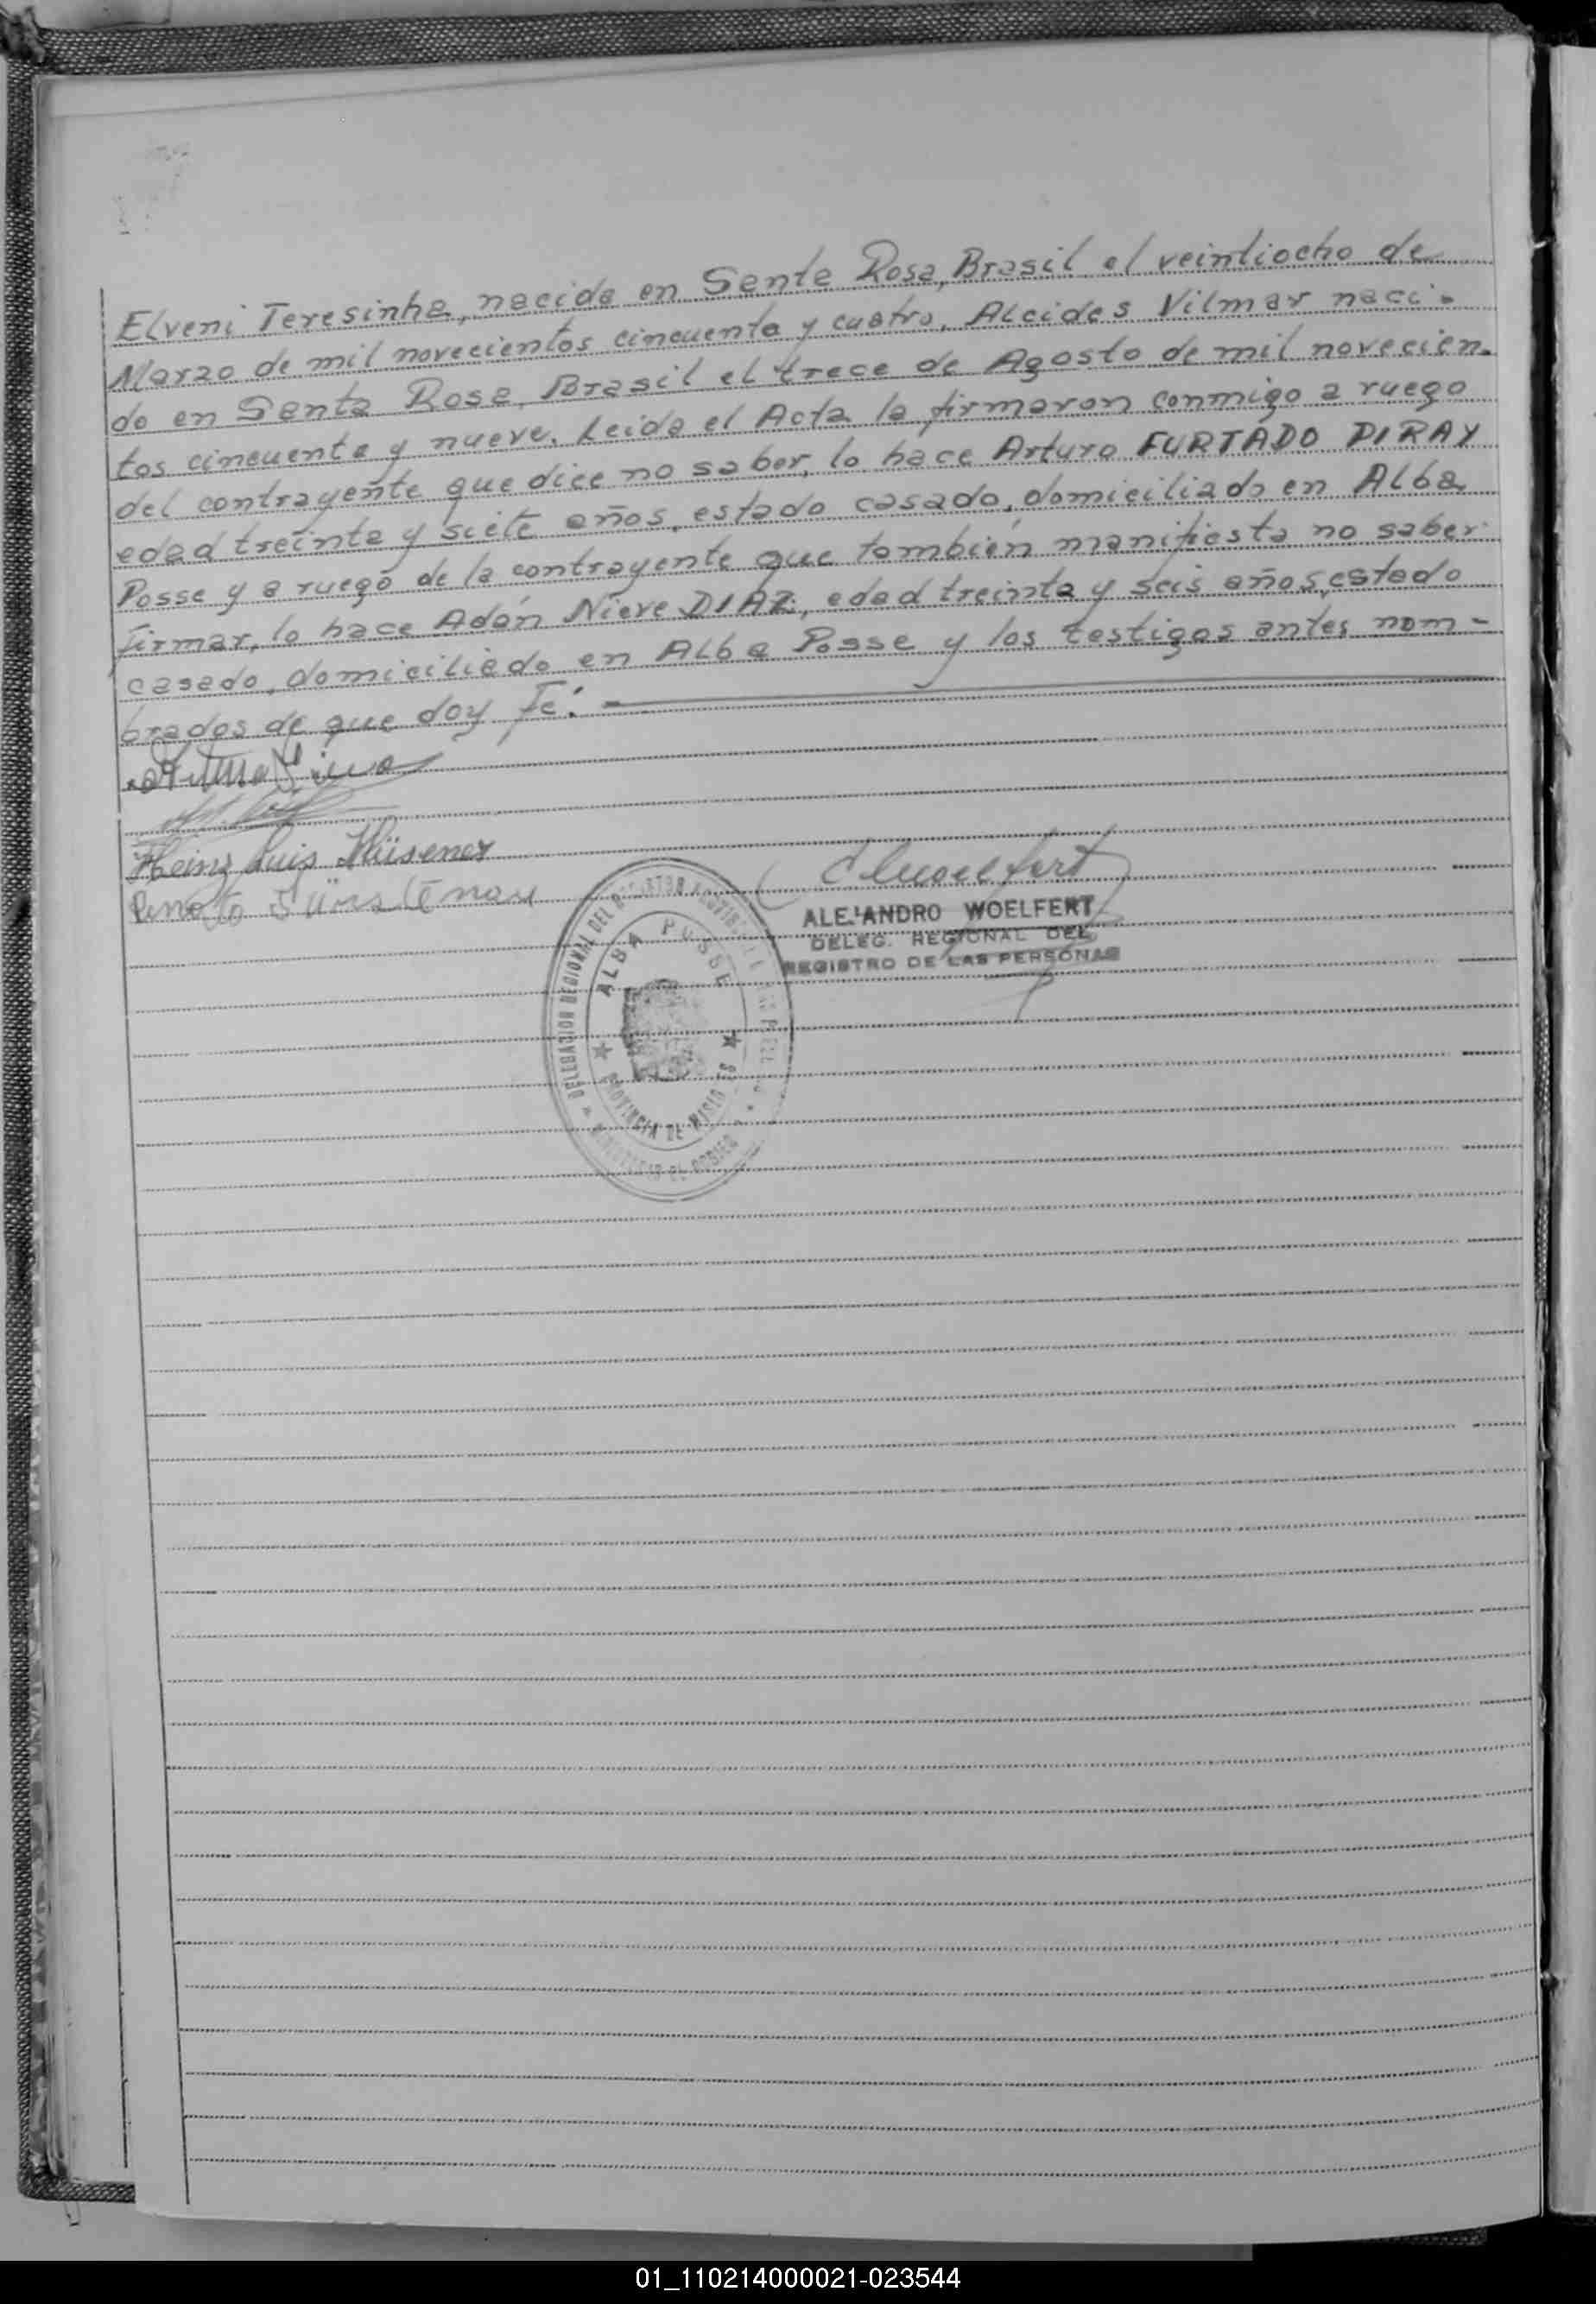 Elveni Teresinha, nacida en Santa Rosa, Brasil el veintiocho de
Marzo de mil novecientos cincuenta y cuatro, Alcides Vilmar naci-
do en Santa Rosa, Brasil el trece de Agosto de mil novecien-
tos cincuenta y nueve. Leida el Acta la firmaron conmigo a ruego
del contrayente que dice no saber, lo hace Arturo FURTADO DIRAY
edad treinta y siete años, estado casado, domiciliado en Alba
Posse y a ruego de la contrayente que también manifiesta no saber
firmar, lo hace Adán Nieve DIAZ, edad treinta y seis años, estado
casado, domiciliado en Alba Posse y los testigos antes nom-
brados de que doy Fé.
Heinz Luis Hüsener
Renato Fürstenau
ALEJANDRO WOELFERT
DELEG. REGIONAL DEL
REGISTRO DE LAS PERSONAS
DELEGACION REGIONAL DEL
ALBA POSSE
PROVINCIA DE MISIONES
01_110214000021-023544